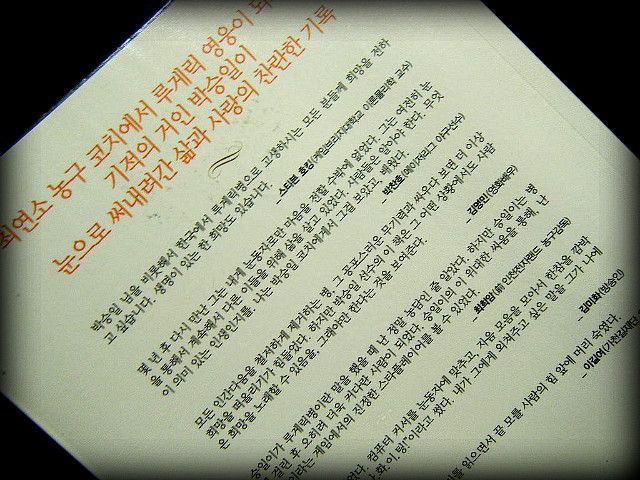 최연소 농구 코치에서 루게릭 영웅이 되
기적의 거인 박승일이
눈으로 써내려간 삶과 사랑의 찬란한 기록
박승일 님을 비롯해서 한국에서 루게릭병으로 고생하시는 모든 분들께 희망을 전하
고 싶습니다. 생명이 있는 한 희망도 있습니다.
_ 스티븐 호킹(케임브리지대학교 이론물리학 교수)
몇 년 후 다시 만난 그는 내게 눈동자로만 마음을 전할 수밖에 없었다. 그는 여전히 눈
을 통해서 계속해서 다른 이들을 위해 삶을 살고 있었다. 사람들은 알아야 한다. 무엇
이 의미 있는 인생인지를. 나는 박승일 코치에게서 그걸 보았고, 배웠다.
_ 박찬호(메이저리그 야구선수)
모든 인간다움을 철저하게 제거하는 병, 그 공포스러운 무기력과 싸우다 보면 더 이상
희망을 떠올리기가 힘들었다. 하지만 박승일 선수의 이 책은 그 어떤 상황에서도 사람
은 희망을 노래할 수 있음을, 그래야만 한다는 것을 보여준다.
_ 김명민(영화배우)
승일이가 루게릭병이란 말을 했을 때 난 정말 농담인 줄 알았다. 하지만 승일이는 병
에 걸린 후 오히려 더욱 커다란 사람이 되었다. 승일이의 이 위대한 싸움을 통해, 난
이라는 게임에서의 진정한 스타플레이어를 볼 수 있었다.
_ 최희암(前 인천전자랜드 농구감독)
었다. 컴퓨터 커서를 눈동자에 맞추고, 자음 모음을 모아서 한참을 깜박
화.이.팅!"이라고 썼다. 내가 그에게 외쳐주고 싶은 말을 그가 나에
_ 김미화(방송인)
를 읽으면서 끝 모를 사랑의 힘 앞에 머리 숙였다.